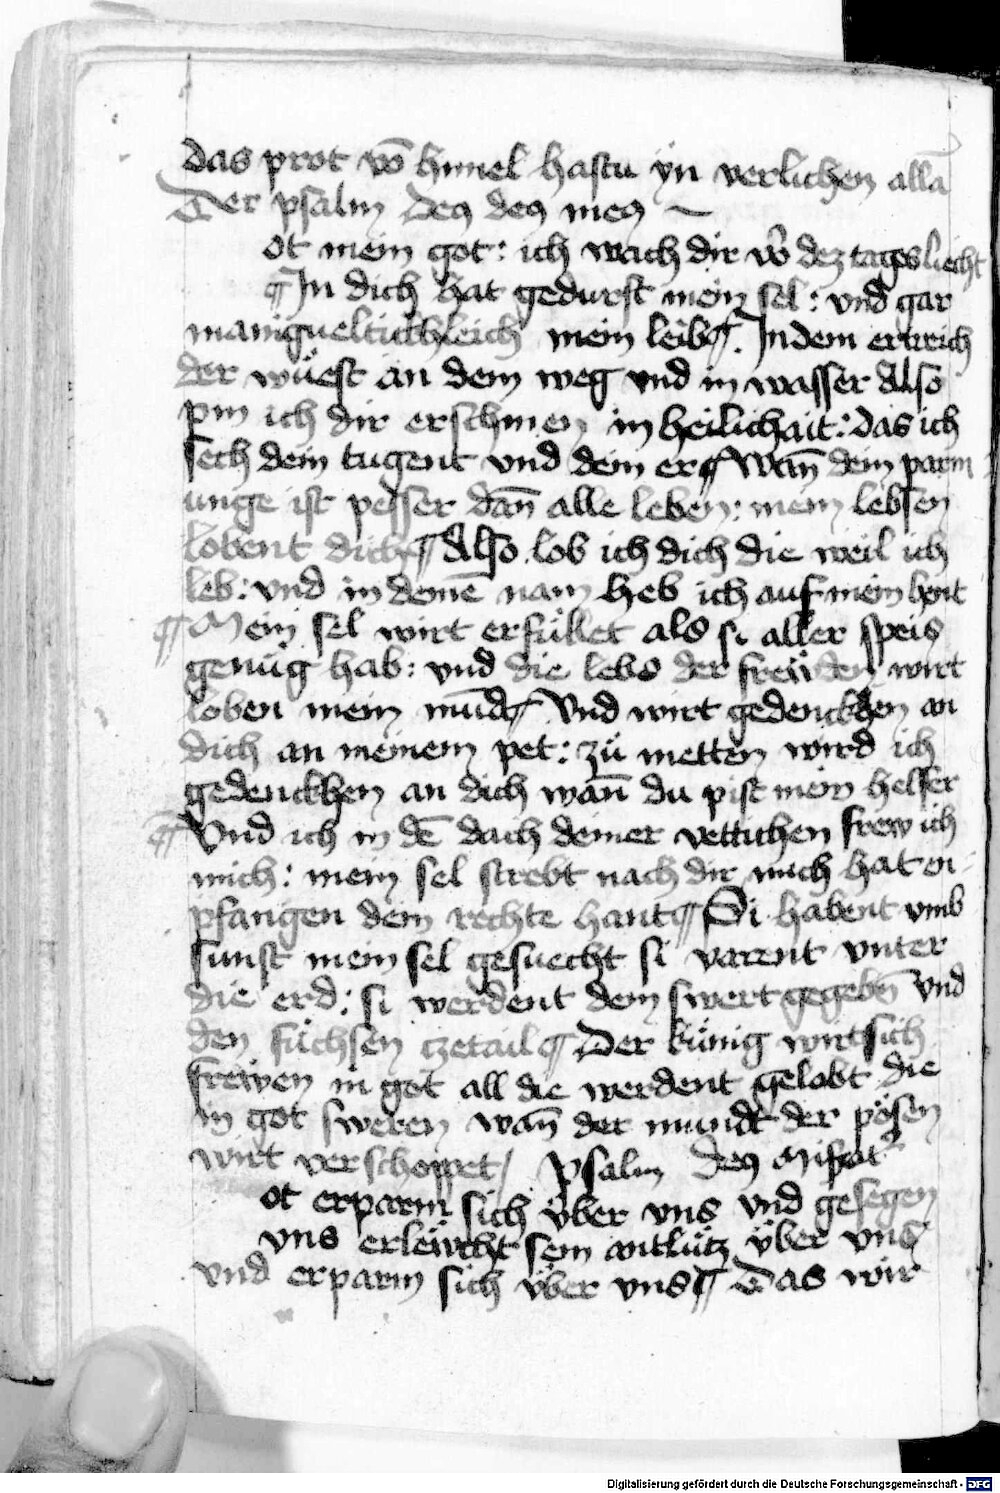 das prot vō himel hastu yn verlichen allā
Der psalm Deꝰ deꝰ meꝰ
ot mein got: ich wach dir vō dez tages liecht
¶ In dich hat gedurst mein sel: vnd gar
manigueltichleich mein leib ¶. In dem ertrich
der wüest än dem weg vnd in wasser Also
pin ich dir erschinen in heilichait: das ich
sech dein tugent vnd dein er ¶ Wān dein parm
unge ist pesser dān alle leben: mein lebsen
lobent dich ¶ Also lob ich dich die weil ich
leb: vnd in deinē nam heb ich auf mein hent
¶ Mein sel wirt erfüllet als si aller speis
genüg hab: vnd die lebs der frewden wirt
loben mein mūd ¶ Vnd wirt gedenckhen an
dich an meinem pet: zü metten wird ich
gedenckhen an dich wān du pist mein helfer
¶ Vnd ich in dē dach deiner vettichen frew ich
mich: mein sel strebt nach dir mich hat en
pfangen dein rechte hant ¶ Si habent vmb
sunst mein sel gesuecht si varent vnter
die erd: si werdent dem swert gegebn̄ vnd
den füchsen czetail ¶ Der künig wirt sich
frewen in got all die werdent gelobt die
in got sweren wān der mundt der pösen
wirt verschoppet / psalm deꝰ Misat᷑
ot erparm sich über vns vnd gesegen
vns erlewcht sein antlütz über vns
vnd erparm sich über vns ¶ Das wir
Digitalisierung gefördert durch die Deutsche Forschungsgemeinschaft - DFG